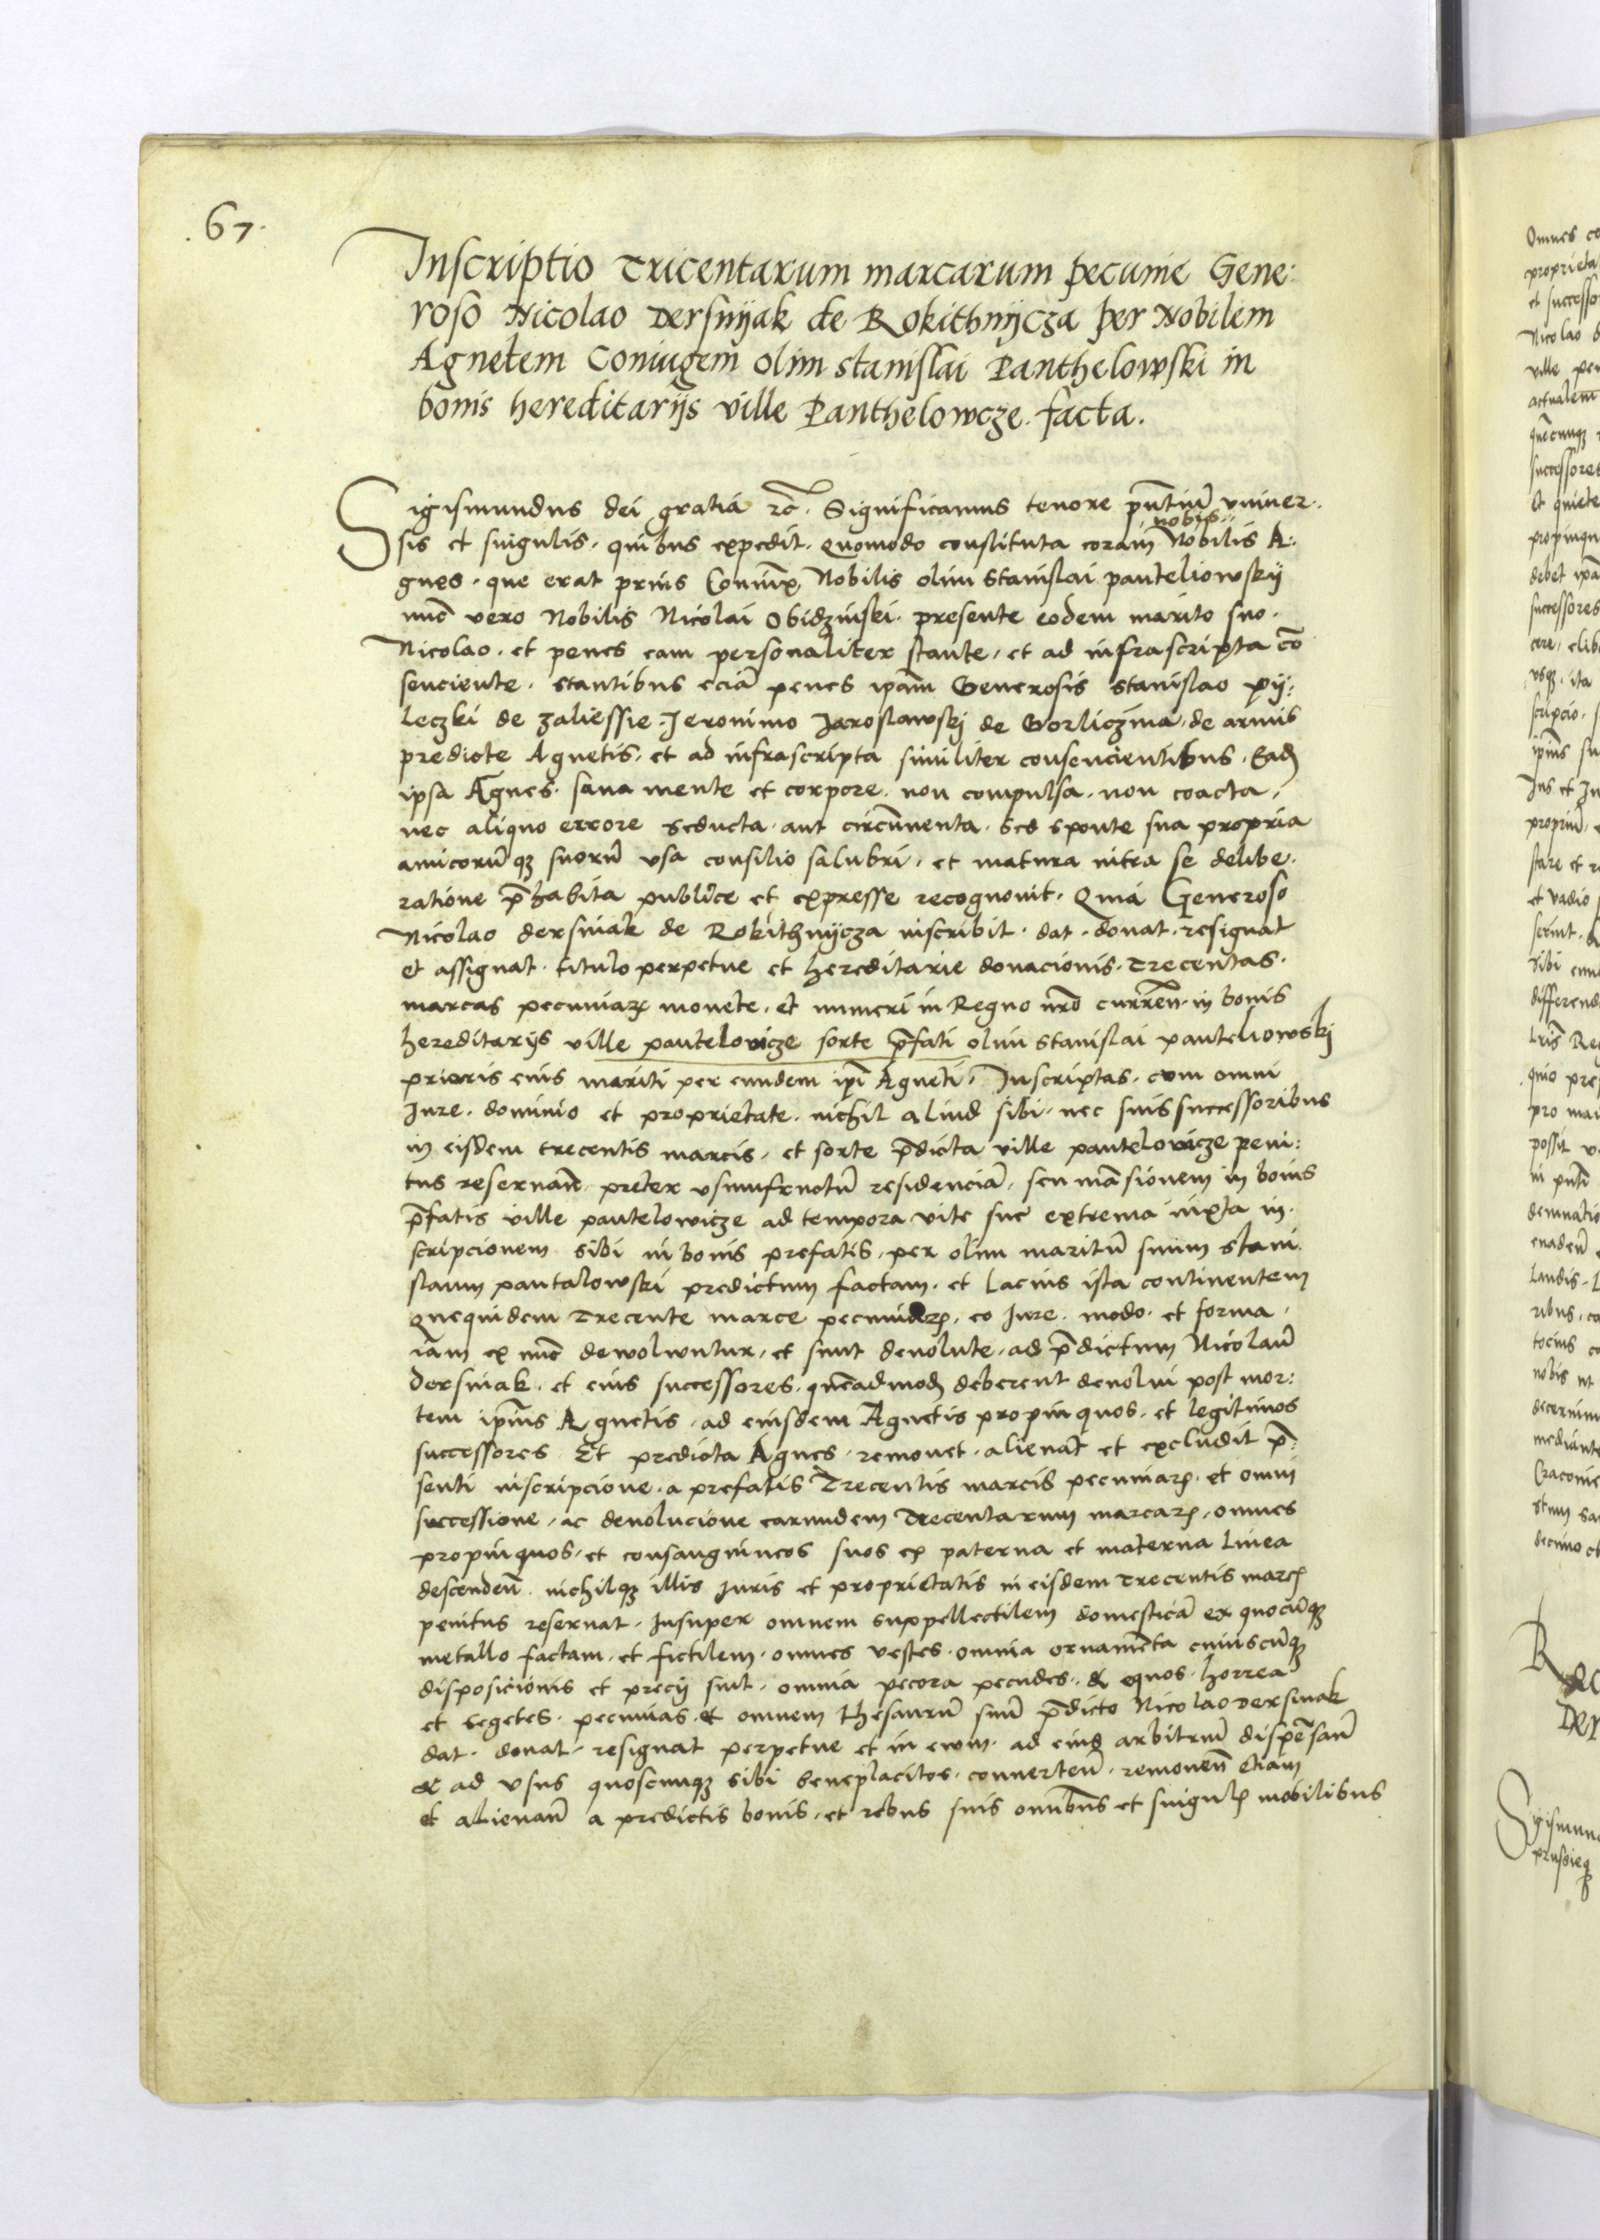 .67.
Inscriptio Tricentarum marcarum pecunie Gene:
roso Nicolao Dersnyak de Rokithnycza per Nobilem
Agnetem Coniugem olim Stanislai Panthelowski in
bonis hereditarijs ville Panthelowcze. facta.
Sigismundus dei gratia rc̄. Significamus tenore pn̄tium vniver.
sis et singulis. quibus expedit. quomodo constituta coram nobis Nobilis A:
gnes. que erat prius Coniunx Nobilis olim Stanislai panteliowskij
nūc vero Nobilis Nicolai Obidzinski. presente eodem marito suo.
Nicolao. et penes eam personaliter stante, et ad infrascripta cō
senciente. stantibus eciā penes ipam̄ Generosis Stanislao py:
leczki de zaliessie. Jeronimo Jaroslawskj de Gorliczina, de armis
predicte Agnetis. et ad infrascripta similiter consencientibus. Eadē
ipsa Agnes. sana mente et corpore. non compulsa. non coacta,
nec aliquo errore seducta. aut circūuenta. sed sponte sua propria
amicorūqꝫ suorū vsa consilio salubri, et matura intra se delibe.
ratione p̄habita publice et expresse recognouit. Quia Generoso
Nicolao dersniak de Rokithnycza inscribit. dat. donat. resignat
et assignat. titulo perpetue et hereditarie donacionis. Trecentas.
marcas pecuniarꝫ monete, et numeri in Regno nr̄o curren̄. in bonis
hereditarijs ville pantelowicze sorte p̄fati olim Stanislai panteliowskj
prioris eius mariti per eundem ip̄i Agneti. Inscriptas. cum omni
Jure. dominio et proprietate. nichil aliud sibi. nec suis successoribus
in eisdem trecentis marcis, et sorte p̄dicta ville pantelowicze peni:
tus reseruan̄. preter vsumfructū residenciā, seu māsionem in bonis
p̄fatis ville pantelowicze ad tempora vite sue extrema iuxta in.
scripcionem sibi in bonis prefatis, per olim maritū suum Stani.
slaum pantalowski predictum factam. et lacius ista continentem
quequidem Trecente marce pecuniarꝫ. eo Jure. modo. et forma,
iam ex nūc dewolwuntur, et sunt deuolute, ad p̄dictum Nicolaū
dersniak. et eius successores. quēadmodū deberent deuolui post mor:
tem ip̄ius Agnetis, ad eiusdem Agnetis propinquos. et legitimos
successores Et predicta Agnes. remouet. alienat et excludit p̄:
senti inscripcione. a prefatis Trecentis marcis pecuniarꝫ. et omni
successione, ac deuolucione earundem Trecentarum marcarꝫ, omnes
propinquos, et consanguineos suos ex paterna et materna linea
descenden̄. nichilqꝫ illis Juris et proprietatis in eisdem Trecentis marcꝭ
penitus reseruat. Insuper omnem suppellectilem domesticā ex quocūqꝫ
metallo factam. et fictilem. omnes vestes. omnia ornamēta cuiuscūqꝫ
disposicionis et precij sint. omnia pecora pecudes. & equos. horrea
et segetes. pecunias. & omnem thesaurū suū p̄dicto Nicolao dersniak
dat. donat. resignat perpetue et in ewm. ad eius arbitriū dispēsan̄
& ad vsus quoscunqꝫ sibi beneplacitos. conuerten̄. remouen̄ Etiam
et alienan̄ a predictis bonis. et rebus suis omībus et singulꝭ mobilibus